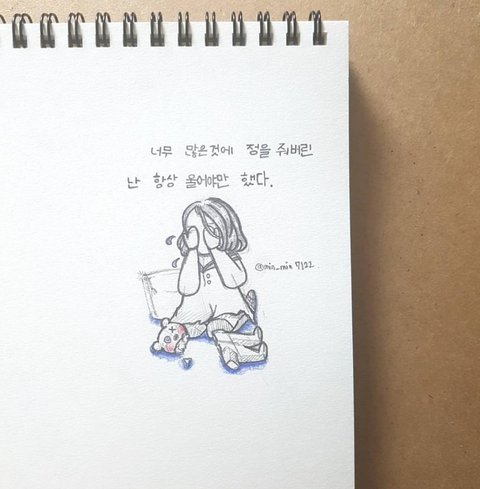 너무 많은것에 정을 줘버린
난 항상 울어야만 했다.
@min_min7122